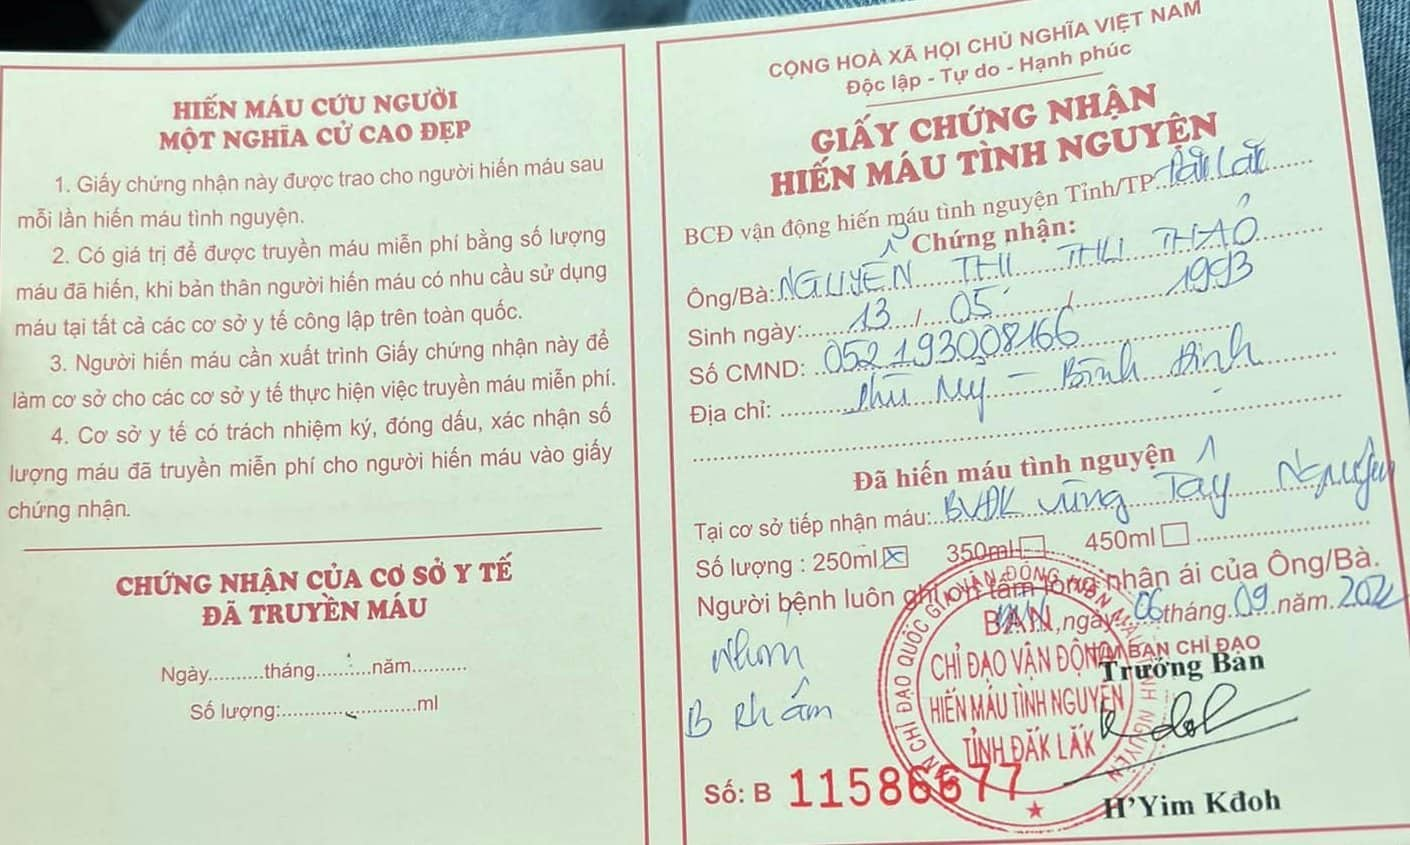 HIẾN MÁU CỨU NGƯỜI
MỘT NGHĨA CỬ CAO ĐẸP
1. Giấy chứng nhận này được trao cho người hiến máu sau
mỗi lần hiến máu tình nguyện.
2. Có giá trị để được truyền máu miễn phí bằng số lượng
máu đã hiến, khi bản thân người hiến máu có nhu cầu sử dụng
máu tại tất cả các cơ sở y tế công lập trên toàn quốc.
3. Người hiến máu cần xuất trình Giấy chứng nhận này để
làm cơ sở cho các cơ sở y tế thực hiện việc truyền máu miễn phí.
4. Cơ sở y tế có trách nhiệm ký, đóng dấu, xác nhận số
lượng máu đã truyền miễn phí cho người hiến máu vào giấy
chứng nhận.
CHỨNG NHẬN CỦA CƠ SỞ Y TẾ
ĐÃ TRUYỀN MÁU
Ngày..........tháng..........năm..........
Số lượng:.........................ml
CỘNG HOÀ XÃ HỘI CHỦ NGHĨA VIỆT NAM
Độc lập - Tự do - Hạnh phúc
GIẤY CHỨNG NHẬN
HIẾN MÁU TÌNH NGUYỆN
BCĐ vận động hiến máu tình nguyện Tỉnh/TP Đắk Lắk
Chứng nhận:
Ông/Bà: NGUYỄN THỊ THU THẢO
Sinh ngày: 13 / 05 / 1993
Số CMND: 052193008166
Địa chỉ: Phù Mỹ - Bình Định
Đã hiến máu tình nguyện
Tại cơ sở tiếp nhận máu: BVĐK vùng Tây Nguyên
Số lượng : 250ml ☒ 350ml ☐ 450ml ☐
Người bệnh luôn ghi ơn tấm lòng nhân ái của Ông/Bà.
ngày 06 tháng 09 năm
TM BAN CHỈ ĐẠO
Trưởng Ban
Nhóm
B
BAN
CHỈ ĐẠO VẬN ĐỘNG
HIẾN MÁU TÌNH NGUYỆN
TỈNH ĐẮK LẮK
Số: B 11586677
H'Yim Kđoh